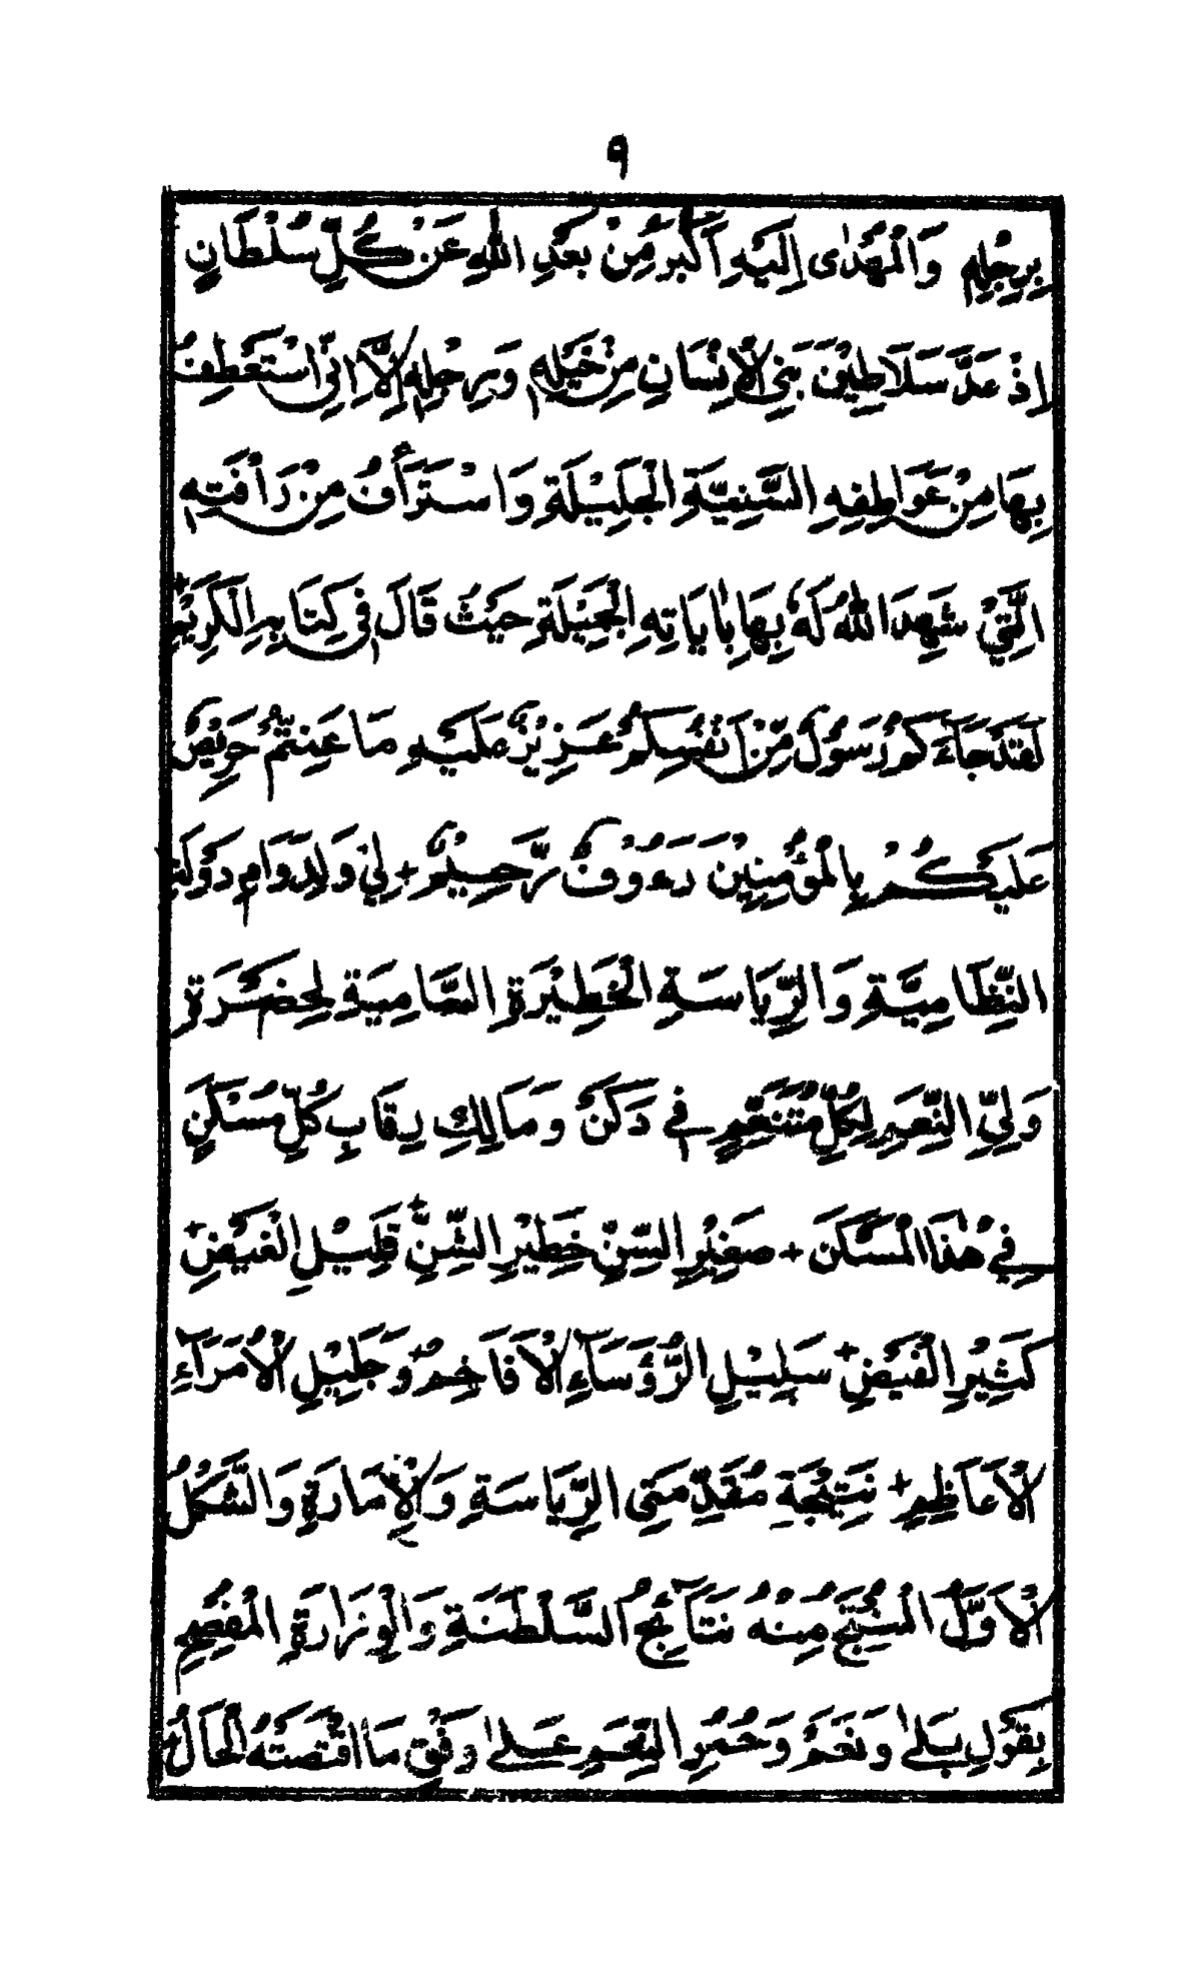 ٩
بِرِجْلِهِ وَالْمُهْدٰى اِلَيْهِ اَكْبَرُ مِنْ بَعْدِ اللّٰهِ عَنْ كُلِّ سُلْطَانٍ
اِذْ عَدَّ سَلَاطِيْنَ بَنِي الْاِنْسَانِ مِنْ خَيْلِهٖ وَرِجْلِهٖ اِلَّا اِنِّيْ اسْتَعْطِفُ
بِهَا مِنْ عَوَاطِفِهِ السَّنِيَّةِ الْجَلِيْلَةِ وَاسْتَرْأَفُ مِنْ رَأْفَتِهٖ
الَّتِيْ شَهِدَ اللّٰهُ لَهٗ بِهَا بِاٰيَاتِهِ الْجَمِيْلَةِ حَيْثُ قَالَ فِي كِتَابِهِ الْكَرِيْمِ +
لَقَدْ جَآءَكُمْ رَسُوْلٌ مِّنْ اَنْفُسِكُمْ عَزِيْزٌ عَلَيْهِ مَا عَنِتُّمْ حَرِيْصٌ
عَلَيْكُمْ بِالْمُؤْمِنِيْنَ رَءُوْفٌ رَّحِيْمٌ + لِيْ وَلِدَوَامِ دَوْلَتِهِ
النِّظَامِيَّةِ وَالرِّيَاسَةِ الْخَطِيْرَةِ السَّامِيَةِ لِحَضْرَةِ
وَلِيِّ النِّعَمِ لِكُلِّ مُتَنَعِّمٍ فِي دَكَنْ وَمَالِكِ رِقَابِ كُلِّ مُسْكَنٍ
فِيْ هٰذَا الْمَسْكَنِ + صَغِيْرِ السِّنِّ خَطِيْرِ الشَّنِّ + قَلِيْلِ الْغَيْضِ +
كَثِيْرِ الْفَيْضِ + سَلِيْلِ الرُّؤَسَآءِ الْاَفَاخِمِ + وَجَلِيْلِ الْاُمَرَآءِ
الْاَعَاظِمِ + نَتِيْجَةِ مُقَدِّمَتَيِ الرِّيَاسَةِ وَالْاِمَارَةِ وَالشَّكْلُ
الْاَوَّلُ الْمُنْتِجُ مِنْهُ نَتَآئِجُ السَّلْطَنَةِ وَالْوِزَارَةِ الْمُفْصِحِ
بِقَوْلِ بَلٰى وَنَعَمْ وَحُمُرِ النِّعَمِ عَلٰى وَفْقِ مَا اقْتَضَتْهُ الْحَالُ +